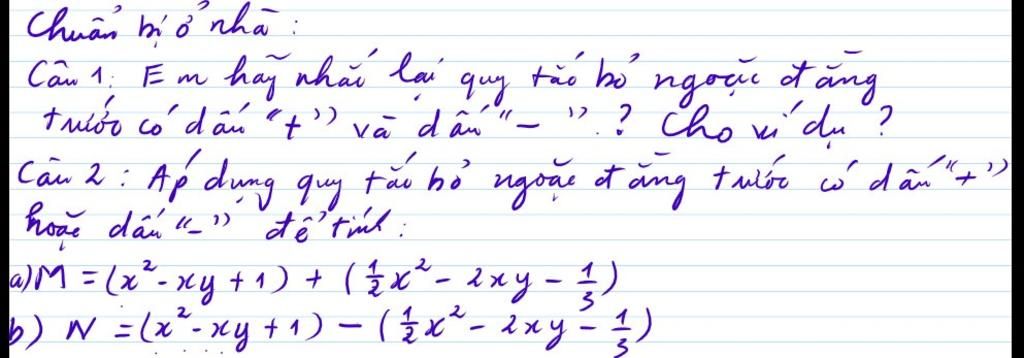 Chuẩn bị ở nhà :
Câu 1: Em hãy nhắc lại quy tắc bỏ ngoặc đằng
trước có dấu "+" và dấu "−" ? Cho ví dụ ?
Câu 2 : Áp dụng quy tắc bỏ ngoặc đằng trước có dấu "+"
hoặc dấu "−" để tính :
a) M = (x² - xy + 1) + (½x² - 2xy - ⅓)
b) N = (x² - xy + 1) − (½x² - 2xy - ⅓)